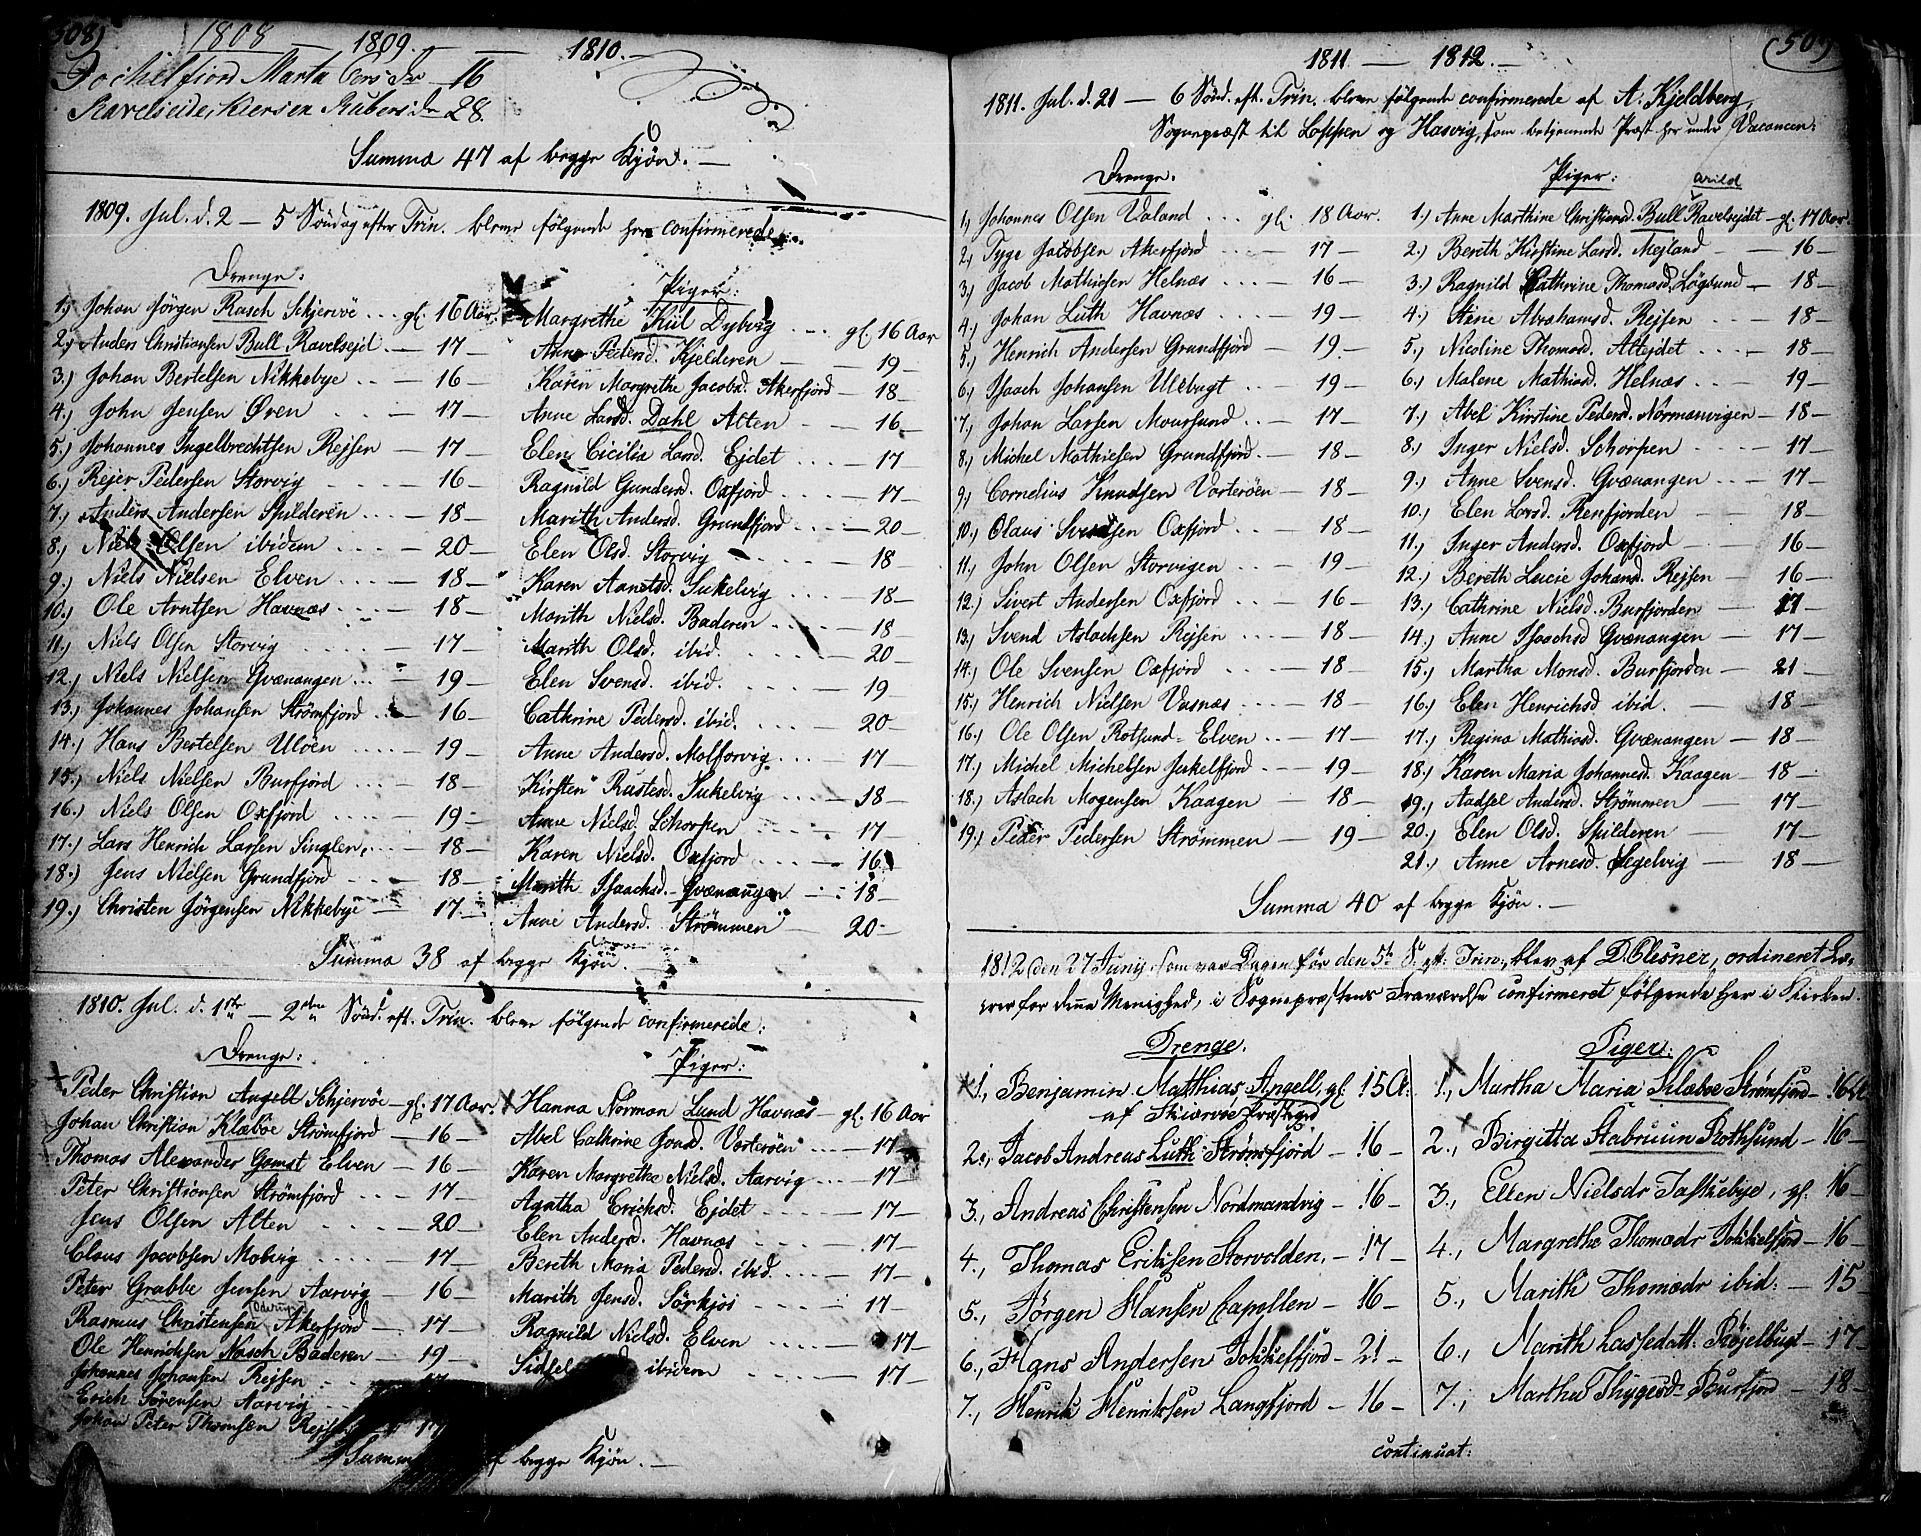 508)
1808 — 1809. — — 1810. —
Jochelfjord Marta Persdr 16
Ravelseide, Kiersen Rubersdr 28.
Summa 47 af begge Kjøn. —
1809. Jul. d. 2 — 5 Søndag efter Trin. bleve følgende her confirmerede:
Drenge:
1.) Johan Jørgen Rasch Schjervöe ... gl. 16 Aar.
2.) Anders Christiansen Bull Ravelsejd. — 17 —
3.) Johan Bertelsen Nikkebye .. — 16 —
4.) John Jensen Øren . . — 17 —
5.) Johannes Ingelbrechtsen Rejsen — 17 —
6.) Rejer Pedersen Storvig — 16 —
7.) Anders Andersen Spilderen — 18 —
8.) Niels Olsen ibidem .... — 20 —
9.) Niels Nielsen Elven ... — 18 —
10.) Ole Arntsen Havnæs ... — 18 —
11.) Niels Olsen Storvig .... — 17 —
12.) Niels Nielsen Qvænangen ... — 19 —
13.) Johannes Johansen Strömfjord .. — 16 —
14.) Hans Bertelsen Ulöen .... — 19 —
15.) Niels Nielsen Burfjord ... — 18 —
16.) Niels Olsen Oxfjord .... — 19 —
17.) Lars Henrich Larsen Singlen, .. — 18 —
18.) Jens Nielsen Grundfjord — 18 —
19.) Christen Jørgensen Nikkebye — 17 —
Piger:
Margrethe Kiil Dybvig .... gl. 16 Aar
Anne Pedersd. Kjelderen — 19 —
Karen Margrethe Jacobsd. Akerfjord — 18 —
Anne Larsd. Dahl Alten — 16 —
Elen Cicilia Larsd. Ejdet .... — 17
Ragnild Gundersd. Oxfjord .... — 17 —
Marith Andersd. Grundfjord .... — 20 —
Elen Olsd. Storvig — 18
Karen Aanetsd. Jukelvig .... — 18 —
Marith Nielsd. Baderen .... — 18
Marith Olsd. ibid. .... — 20 —
Elen Svensd. ibid. .... — 19
Cathrine Pedersd. ibid. .. 20 —
Anne Andersd. Molforvig .... 17
Kirsten Rastesd. Jukelvig .... — 18 —
Anne Nielsd. Skorpen .... — 17 —
Karen Nielsd. Oxfjord .... — 16
Marith Isaachsd. Qvænangen — 18 —
Anne Andersd. Strömmen — 20 —
Summa 38 af begge Kjøn.
1810. Jul. d. 1ste — 2den Sönd. eft. Trin. bleve følgende confirmerede:
Drenge:
Peder Christian Angell Schjervöe — gl. 17 Aar.
Johan Christian Klæboe Strömfjord — 16 —
Thomas Alexander Gamst Elven — 16 —
Peter Christiansen Strömfjord ... — 17 —
Jens Olsen Alten .... — 20 —
Claus Jacobsen Molvig .... — 17 —
Peter Grabbe Jensen Aarvig — 16 —
Rasmus Christensen Akerfjord — 17 —
Ole Henrichsen Nasch Baderen — 19 —
Johannes Johansen Rejsen ... — 17
Erich Sörensen Aarvig ...
Johan Peter Thomsen Rejsen 17
Piger:
Hanna Norman Lund Havnæs — gl. 16 Aar
Abel Cathrine Jonsd. Vorterøen ... — 17 —
Karen Margrethe Nielsd. Aarvig ... — 17 —
Agatha Erichsd. Ejdet .... — 17 —
Elen Andersd. Havnæs .... 17 —
Bereth Maria Pedersd. ibid. .... — 17 —
Marith Jensd. Sörkjos .... — 17 —
Ragnild Nielsd. Elven .... 17 —
Sidsel ibidem .... — 17 —
Summ af begge Kjøn. —
509
1811 — 1812. —
1811. Jul. d. 21 — 6 Sönd. eft. Trin. bleve følgende confirmerede af A. Kjeldberg,
Sognepræst til Loppen og Hasvig, som betjenende Præst her under Vacancen:
Drenge.
1.) Johannes Olsen Valand ... gl. 18 Aar.
2.) Tyge Jacobsen Akerfjord — 17 —
3.) Jacob Mathisen Helnæs ... — 16 —
4.) Johan Luth Havnæs ... — 19 —
5.) Henrich Andersen Grundfjord — 19 —
6.) Isaach Johansen Ulsbugt .. — 19 —
7.) Johan Larsen Maursund .. — 17 —
8.) Michel Mathiesen Grundfjord. — 18 —
9.) Cornelius Knudsen Vorterøen — 18 —
10.) Olaus Svendsen Oxfjord .. — 18 —
11.) John Olsen Storvigen ... — 19 —
12.) Sivert Andersen Oxfjord .. — 16 —
13.) Svend Aslachsen Rejsen .. — 18 —
14.) Ole Svensen Oxfjord .. — 18 —
15.) Henrich Nielsen Vasnæs .... — 18 —
16.) Ole Olsen Rotsund-Elven .. — 17 —
17.) Michel Michelsen Jukelfjord — 19 —
18.) Aslach Mogensen Kaagen — 18 —
19.) Peder Pedersen Strömmen — 19 —
Piger: arild
1.) Anne Marthine Christiansd. Bull Ravelsejdet — gl. 17 Aar.
2.) Bereth Kirstine Larsd. Mejland — 16 —
3.) Ragnild Cathrine Thomasd. Lögsund — 18 —
4.) Stine Abrahamsd. Rejsen — 18 —
5.) Nicoline Thomasd. Altejdet ... — 18 —
6.) Malene Mathiasd. Helnæs .. — 19 —
7.) Abel Kirstine Pedersd. Normanvigen — 18 —
8.) Inger Nielsd. Schorpen — 17 —
9.) Anne Svensd. Qvænangen — 17 —
10.) Elen Larsd. Renfjorden — 18 —
11.) Inger Andersd. Oxfjord — 16 —
12.) Bereth Lucie Johansd. Rejsen — 16 —
13.) Cathrine Nielsd. Burfjorden — 17 —
14.) Anne Isaachsd Qvænangen — 17 —
15.) Martha Monsd. Burfjorden — 21 —
16.) Elen Henrichsd ibid. — 18 —
17.) Regina Mathiasd. Qvænangen — 18 —
18.) Karen Maria Johannesd. Kaagen — 18 —
19.) Aadsel Andersd. Strömmen — 17 —
20.) Elen Olsd. Spilderen — 17 —
21.) Anne Arnesd. Segelvig — 18 —
Summa 40 af begge Kjön. —
1812 den 27 Junij, som var Dagen før den 5te S. eft. Trin:, blev af D. Olesner, ordineret Læ-
rer for denne Menighed, i Sognepræstens Fraværelse confirmeret følgende her i Kirken.
Drenge.
1., Benjamin Matthias Angell, gl. 15 A:
af Skiærvöe Præstgrd
2., Jacob Andreas Luth Strömfjord — 16 —
3., Andreas Christensen Nordmandvig — 16 —
4., Thomas Eriksen Storvolden. — 17 —
5., Jörgen Hansen Capollen — 16 —
6., Hans Andersen Jokkelfjord — 21 —
7., Henrik Henriksen Langfjord — 16 —
Piger:
1., Martha Maria Klæboe Strömfjord — 16 A
2., Birgitta Stabruun Rothsund — 16 —
3., Ellen Nielsdr Taskebye, gl. 16 —
4., Margrethe Thomædr Jokkelfjord — 16 —
5., Marith Thomædr ibid: — 15 —
6., Marith Lassedatt. Röjelbugt — 17 —
7., Martha Thygesdr Burfjord — 18 —
continuat: